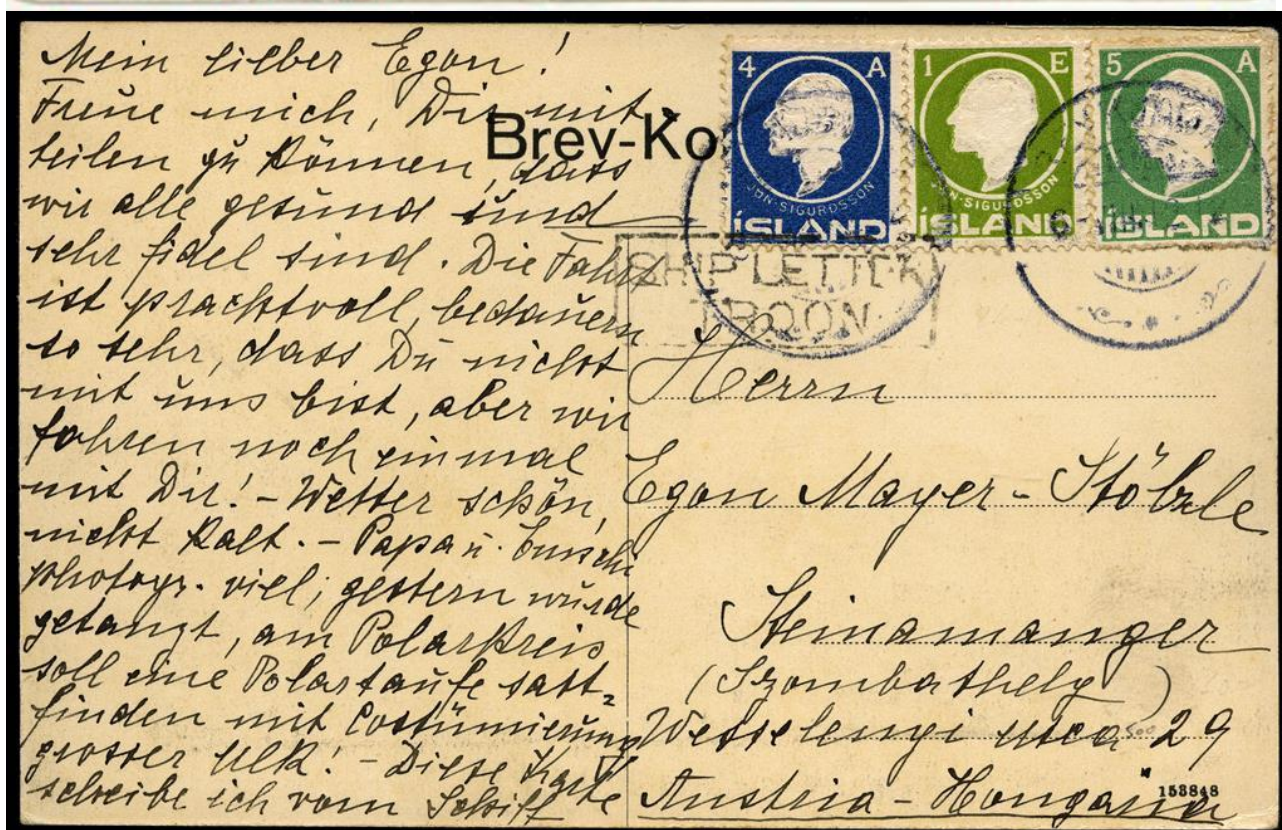 Mein lieber Egon!
Freue mich, Dir mit-
teilen zu können, dass
wir alle gesund und
sehr fidel sind. Die Fahrt
ist prachtvoll, bedauern
so sehr, dass Du nicht
mit uns bist, aber wir
fahren noch einmal
mit Dir! - Wetter schön,
nicht kalt. - Papa u.
photogr. viel; gestern wurde
getanzt, am Polarkreis
soll eine Polartaufe satt-
finden mit Costümierung
grosser Ulk! - Diese Karte
schreibe ich vom Schiff
Brev-Ko
4 A
JÓN·SIGURÐSSON
ÍSLAND
1 E
JÓN·SIGURÐSSON
ÍSLAND
5 A
ÍSLAND
SHIP LETTER
TROON
Herrn
Egon Mayer-Stölzle
Steinamanger
(Szombathely)
Wesselenyi utca 29
Austria - Hongaria
153848